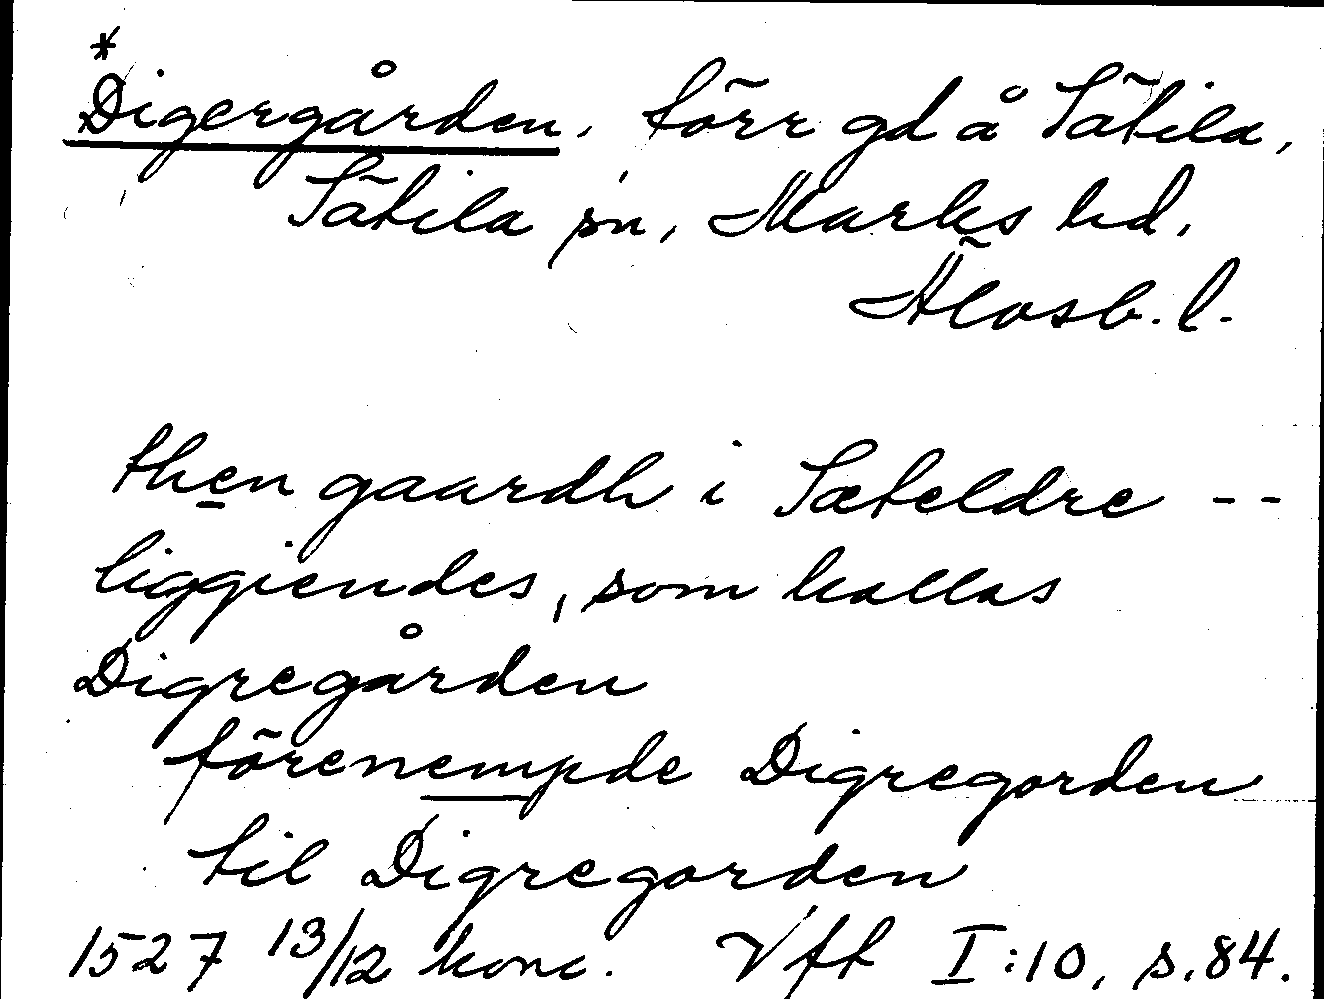 *
Digergården, förr gd å Sätila,
Sätila sn, Marks hd,
Älvsb. l.
then gaardh i Sæteldre --
liggiendes, som kallas
Digregården
förenempde Digregorden
til Digregorden
1527 13/12 konc. Vft I:10, s. 84.